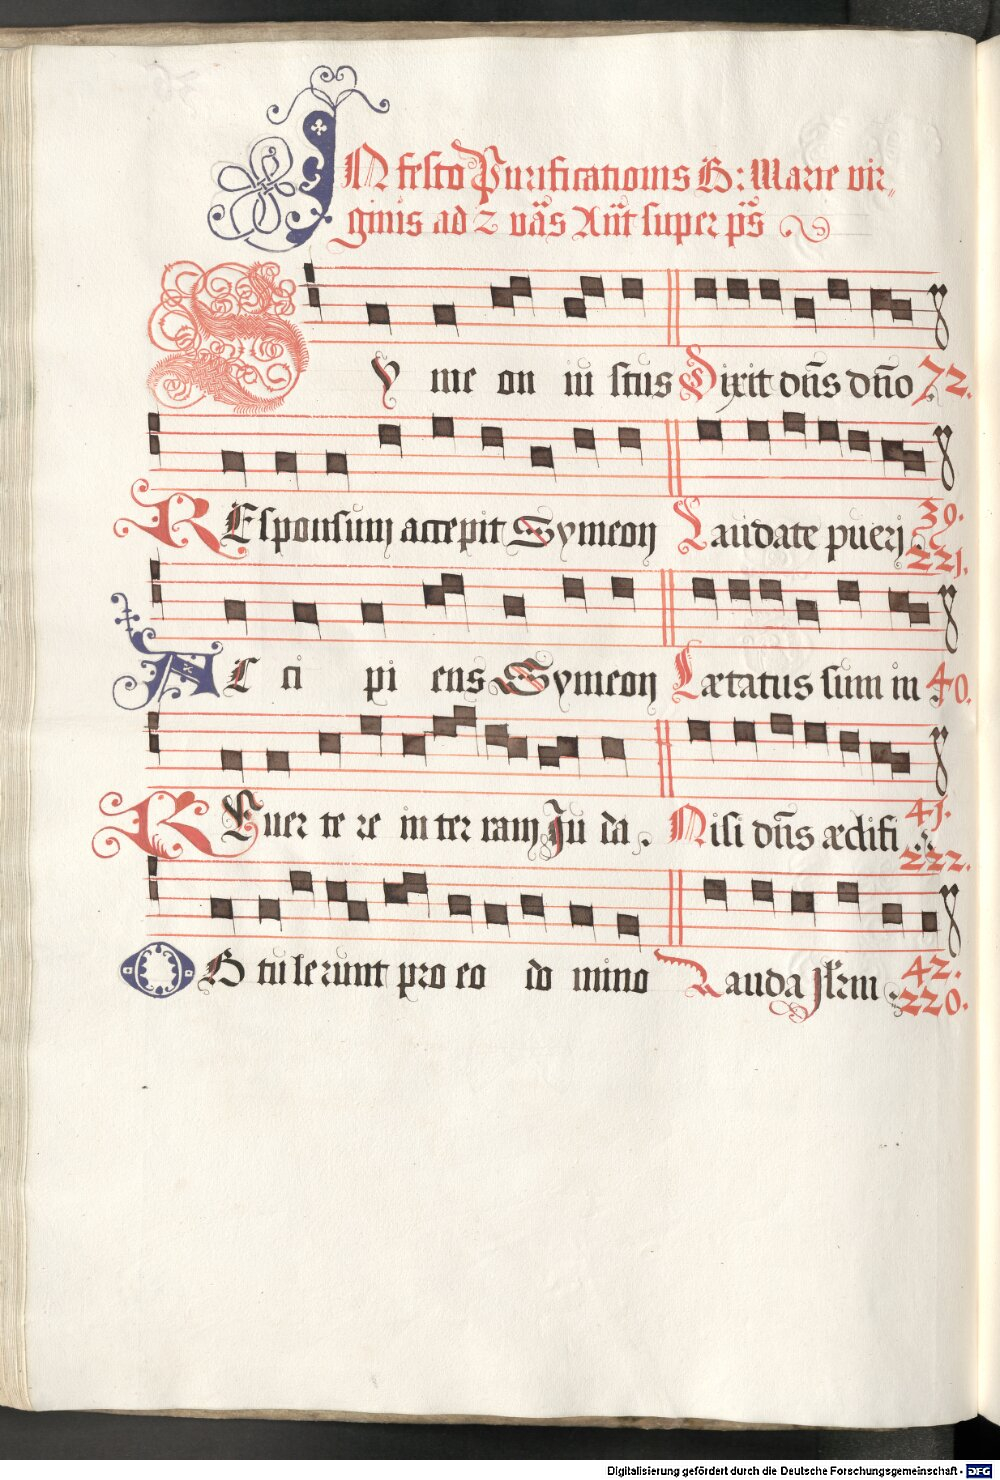 IN festo Purificationis B: Marie vir„
ginis ad 2 vās Añt super ps̄
SYmeon iustus Dixit dñs dño 72.
REsponsum accepit Symeon Laudate pueri 39.
221.
ACcipiens Symeon Lætatus sum in 40.
REuertere in terram Juda. Nisi dñs ædifi 41.
222.
OBtulerunt pro eo domino Lauda Jłrm 42.
220.
Digitalisierung gefördert durch die Deutsche Forschungsgemeinschaft - DFG